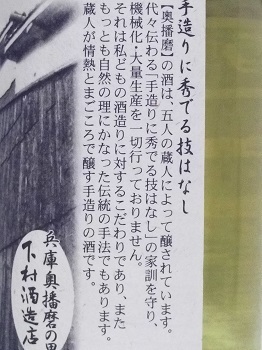 手造りに秀でる技はなし
【奥播磨】の酒は、五人の蔵人によって醸されています。
代々伝わる「手造りに秀でる技はなし」の家訓を守り、
機械化・大量生産を一切行っておりません。
それは私どもの酒造りに対するこだわりであり、また
もっとも自然の理にかなった伝統の手法でもあります。
蔵人が情熱とまごころで醸す手造りの酒です。
兵庫奥播磨の里
下村酒造店